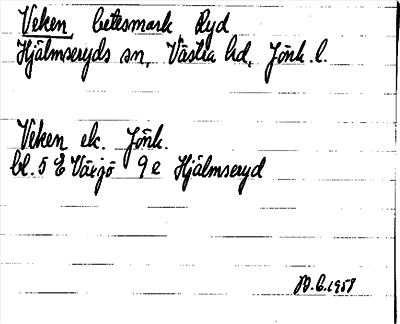 Veken, betesmark, Ryd
Hjälmseryds sn, Västra hd, Jönk. l.
Veken ek. Jönk.
bl. 5 E Växjö 9 e Hjälmseryd
1958